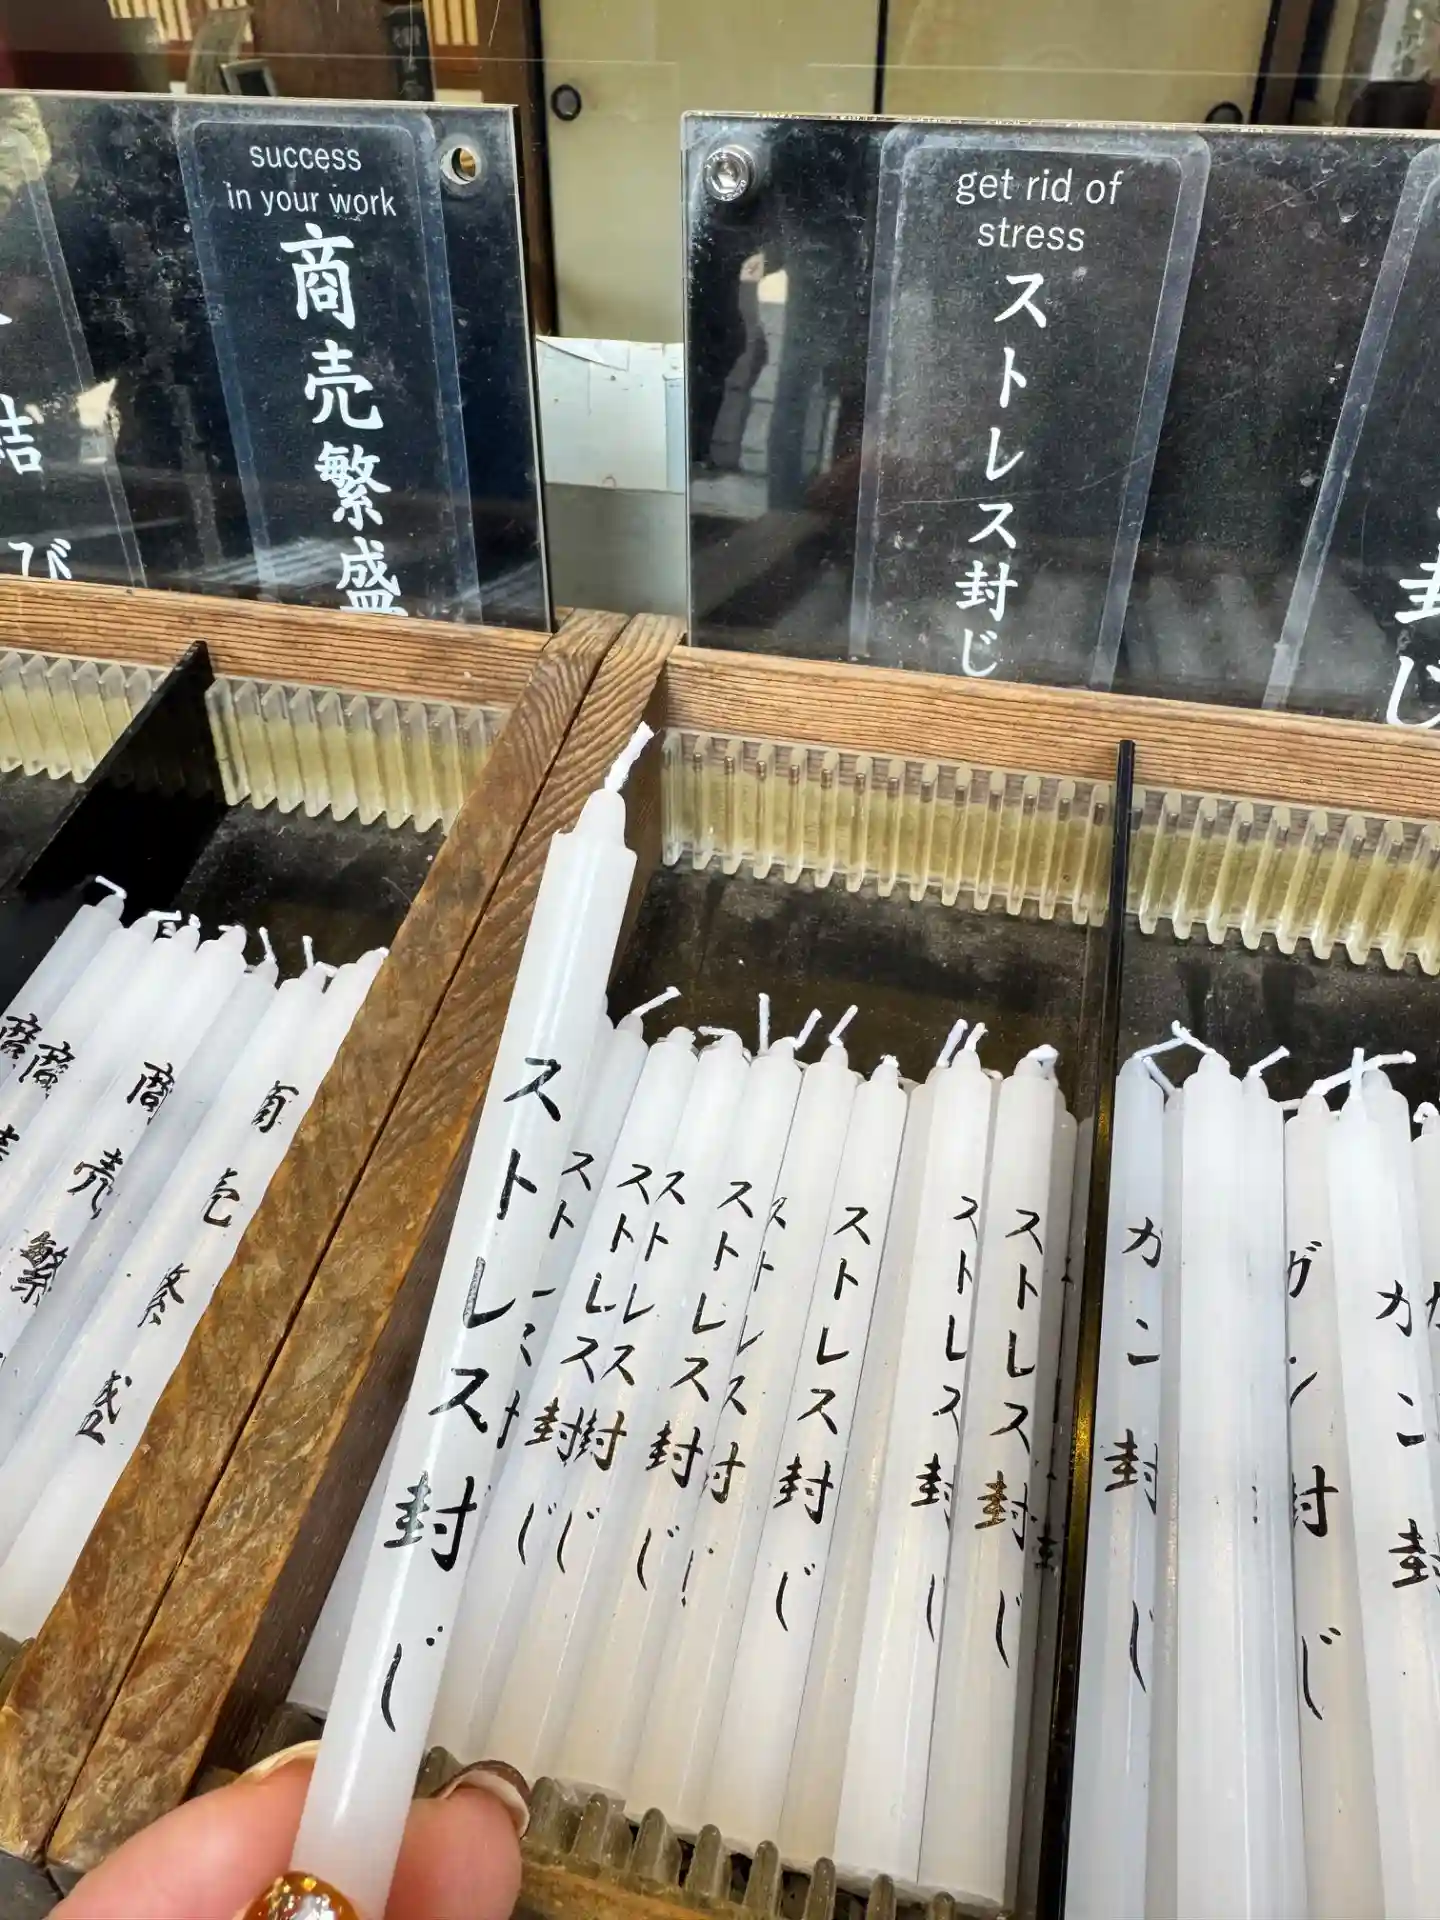 結び
success
in your work
商売繁盛
get rid of
stress
ストレス封じ
封じ
商売繁
商売繁盛
ストレス封じ
ストレス封じ
ストレス封じ
ストレス封じ
ストレス封じ
ストレス封じ
ストレス封じ
ストレス封じ
ガン封じ
ガン封じ
ガン封